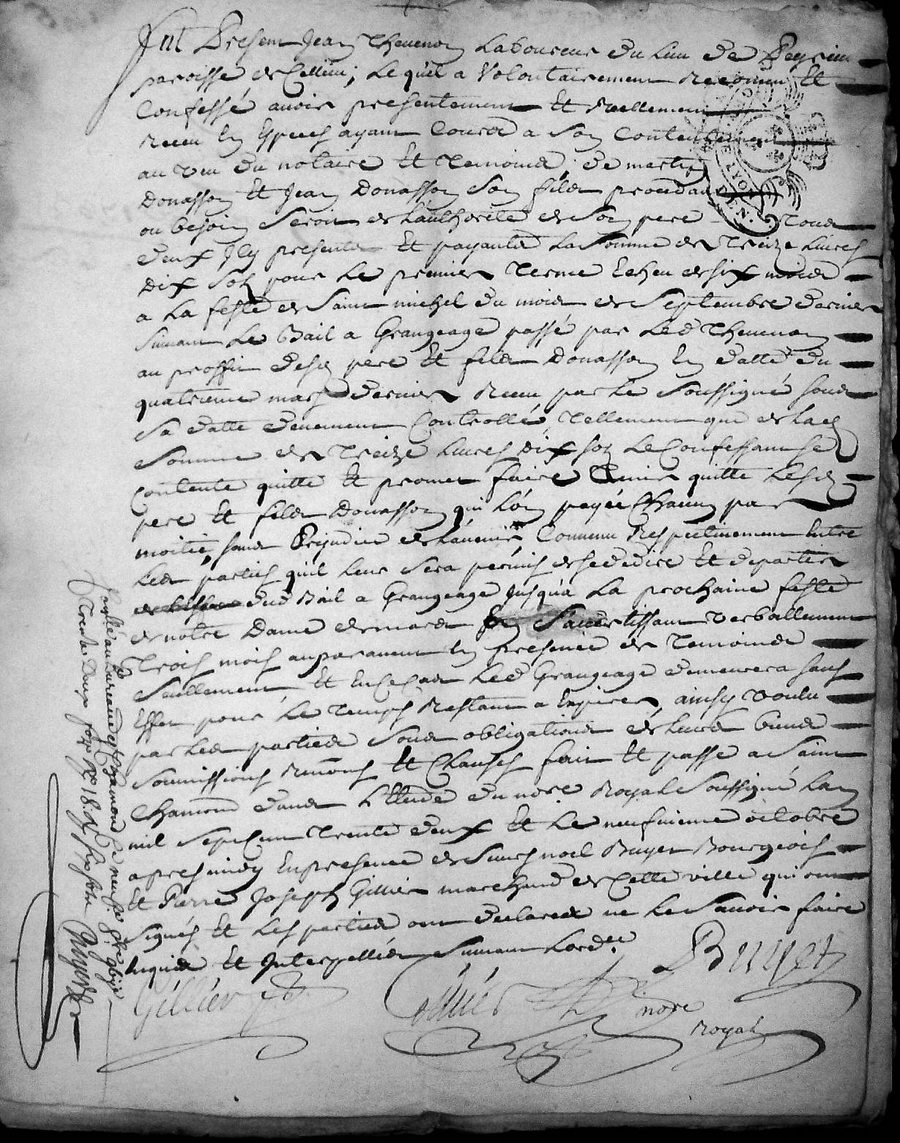 fut Present Jean Thevenon Laboureur du lieu de
paroisse de Cellieu, Lequel a Volontairement Reconnu Et
Confessé avoir presentement Et Reellement
Receu En Especes ayant Cours a Son Contentement
au veu du notaire Et Temoins, de
Donasson Et Jean Donasson Son fils procedant
ou besoin Seroit de L'authorité de Son pere Tous
deux Icy presents Et payants La Somme de Treize Livres
Dix Sols pour Le premier Terme Echeu de Six mois
a La feste de Saint michel du mois de Septembre dernier
Suivant Le Bail a Grangeage passé par Led Thevenon
au proffit desd pere Et fils Donasson En datte du
quatrieme mars dernier Receu par Le Soussigné Sous
Sa datte deuement Controllé, Tellement que de Lad
Somme de Treize Livres Dix Sols Le Confessant Se
Contente quitte Et promet faire Tenir quitte Lesd
pere Et fils Donasson qui L'on payée Chacun par
moitié, Sans Prejudice de L'avenir Convenu Respectivement Entre
Les parties quil Leur Sera permis de Sedédire Et departir
dud Bail a Grangeage Jusqua La prochaine feste
de notre Dame de mars S'avertissant Verballement
Trois mois auparavant En presence de Temoins
Seullement Et En Ce Cas Led Grangeage demeurera Sans
Effet pour Le Temps Restant a Expirer, ainsy Voulu
par Les parties Sous obligations de Leurs biens
Soumissions Renons Et Clauses fait Et passé a Saint
Chamond dans L'Etude du nore Royal Soussigné Lan
mil Sept Cent Trente deux Et Le neufvieme octobre
apres midy En presence de Sieurs noel Buyet Bourgeois
Et Pierre Joseph Gillier marchand de Cette ville qui ont
Signés Et Les parties ont declarés ne Le Savoir faire
Enquis Et Interpellés Suivant Lord.ce
Gillier
Buyet
nore
Royal